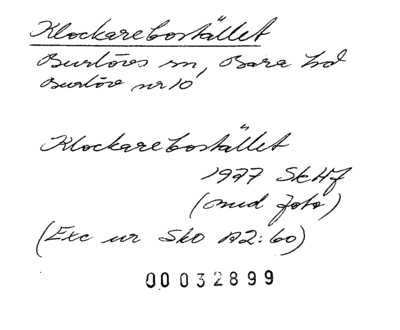 Klockarebostället
Burlövs sn, Bara hd
Burlöv nr 10
Klockarebostället
1927 SkHf
(med foto)
(Exc ur SkO A2:60)
00032899